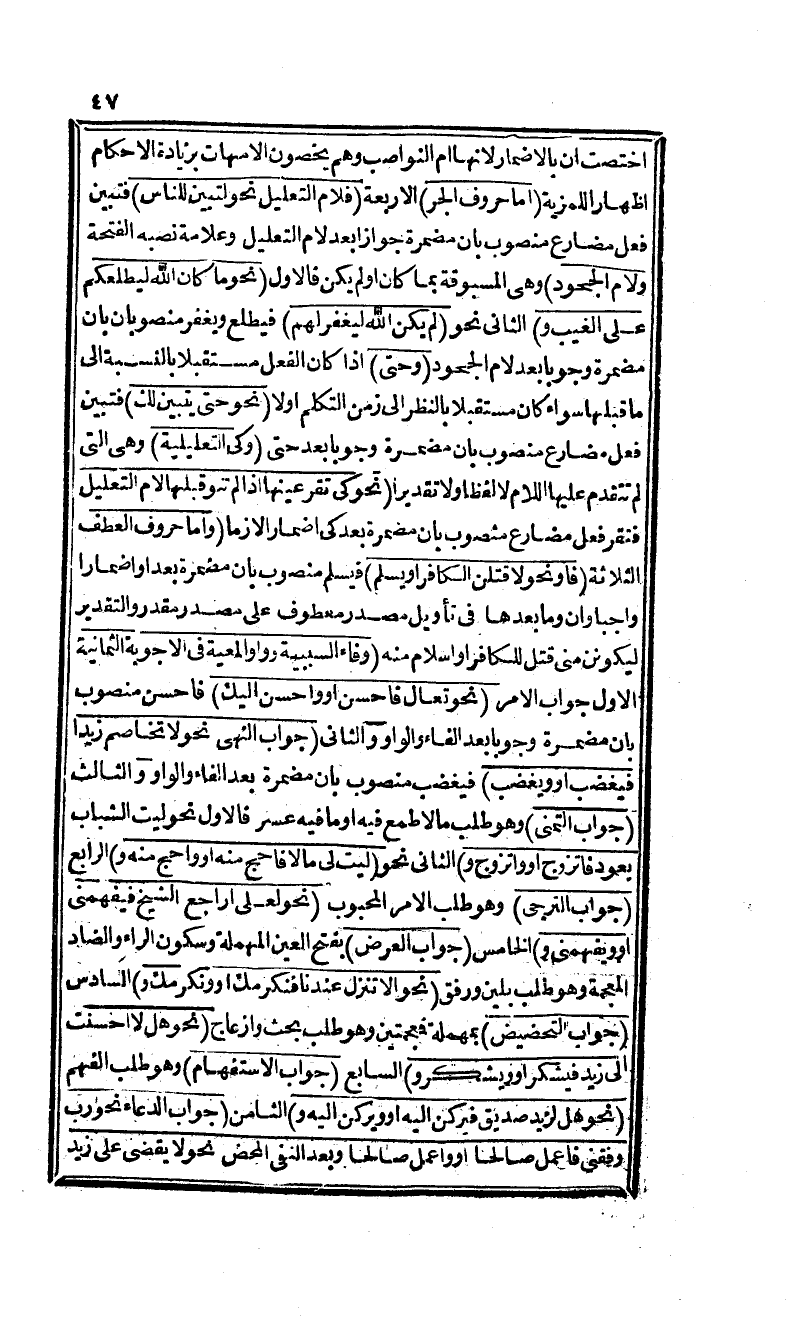 ٤٧
اختصت ان بالاضمار لانها ام النواصب وهم يخصون الامهات بزيادة الاحكام
اظهارا للمزية (اما حروف الجر) الاربعة (فلام التعليل نحو لتبين للناس) فتبين
فعل مضارع منصوب بان مضمرة جوازا بعد لام التعليل وعلامة نصبه الفتحة
ولام الجحود) وهى المسبوقة بما كان او لم يكن فالاول (نحو ما كان الله ليطلعكم
على الغيب و) الثانى نحو (لم يكن الله ليغفر لهم) فيطلع ويغفر منصوبان بان
مضمرة وجوبا بعد لام الجحود (وحتى) اذا كان الفعل مستقبلا بالنسبة الى
ما قبلها سواء كان مستقبلا بالنظر الى زمن التكلم اولا (نحو حتى يتبين لك) فتبين
فعل مضارع منصوب بان مضمرة وجوبا بعد حتى (وكى التعليلية) وهى التى
لم تتقدم عليها اللام لا لفظا ولا تقديرا (نحو كى تقر عينها اذا لم تنو قبلها لام التعليل
فتقر فعل مضارع منصوب بان مضمرة بعد كى اضمارا لازما (واما حروف العطف
الثلاثة (فاو نحو لاقتلن الكافر او يسلم) فيسلم منصوب بان مضمرة بعد او اضمارا
واجبا وان وما بعدها فى تأويل مصدر معطوف على مصدر مقدر والتقدير
ليكونن منى قتل للكافر او اسلام منه (وفاء السببية وواو المعية فى الاجوبة الثمانية
الاول جواب الامر (نحو تعال فاحسن او واحسن اليك) فاحسن منصوب
بان مضمرة وجوبا بعد الفاء والواو و الثانى (جواب النهى نحو لا تخاصم زيدا
فيغضب او ويغضب) فيغضب منصوب بان مضمرة بعد الفاء والواو و الثالث
(جواب التمنى) وهو طلب مالا طمع فيه او ما فيه عسر فالاول نحو ليت الشباب
يعود فاتزوج او واتزوج و) الثانى نحو (ليت لى مالا فاحج منه او واحج منه و) الرابع
(جواب الترجى) وهو طلب الامر المحبوب (نحو لعلى اراجع الشيخ فيفهمنى
او ويفهمنى و) الخامس (جواب العرض) بفتح العين المهملة وسكون الراء والضاد
المعجمة وهو طلب بلين ورفق (نحو الا تنزل عندنا فنكرمك او ونكرمك و) السادس
(جواب التحضيض) بمهملة فمعجمتين وهو طلب بحث وازعاج (نحو هل لا احسنت
الى زيد فيشكر او ويشكر و) السابع (جواب الاستفهام) وهو طلب الفهم
(نحو هل لزيد صديق فيركن اليه او ويركن اليه و) الثامن (جواب الدعاء نحو رب
وفقنى فاعمل صالحا او واعمل صالحا وبعد النفى المحض نحو لا يقضى على زيد